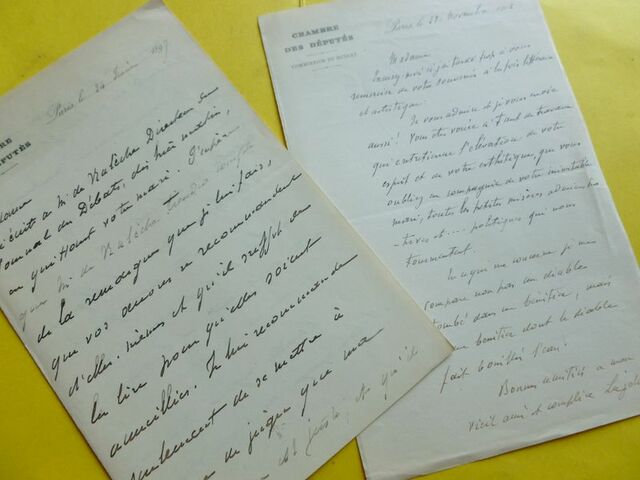 CHAMBRE
DES DÉPUTÉS
Paris le 24 1897
J'écris à M. de Nalèche Directeur du
Journal des Débats, dès hier matin,
en quittant votre mari. J'espère
que M. de Nalèche tiendra compte
de la remarque que je lui fais,
que vos œuvres se recommandent
d'elles-mêmes et qu'il suffit de
les lire pour qu'elles soient
accueillies. Je lui recommande
seulement de se mettre à
juger que ma
est juste, et qu'il
CHAMBRE
DES DÉPUTÉS
COMMISSION DU BUDGET
Paris le 29 Novembre
Madame
Excusez-moi si j'ai tardé trop à vous
remercier de votre souvenir à la fois littéraire
et artistique.
Je vous admire et je vous envie
aussi! Vous êtes vouée à tant de travaux
qui entretiennent l'élévation de votre
esprit et de votre esthétique, que vous
oubliez en compagnie de votre inimitable
mari, toutes les petites misères administra-
tives et.... politiques qui nous
tourmentent.
En ce qui me concerne je me
compare non pas au diable
tombé dans un bénitier, mais
un bénitier dont le diable
fait bouillir l'eau!
Bonnes amitiés à mon
vieil ami et complice